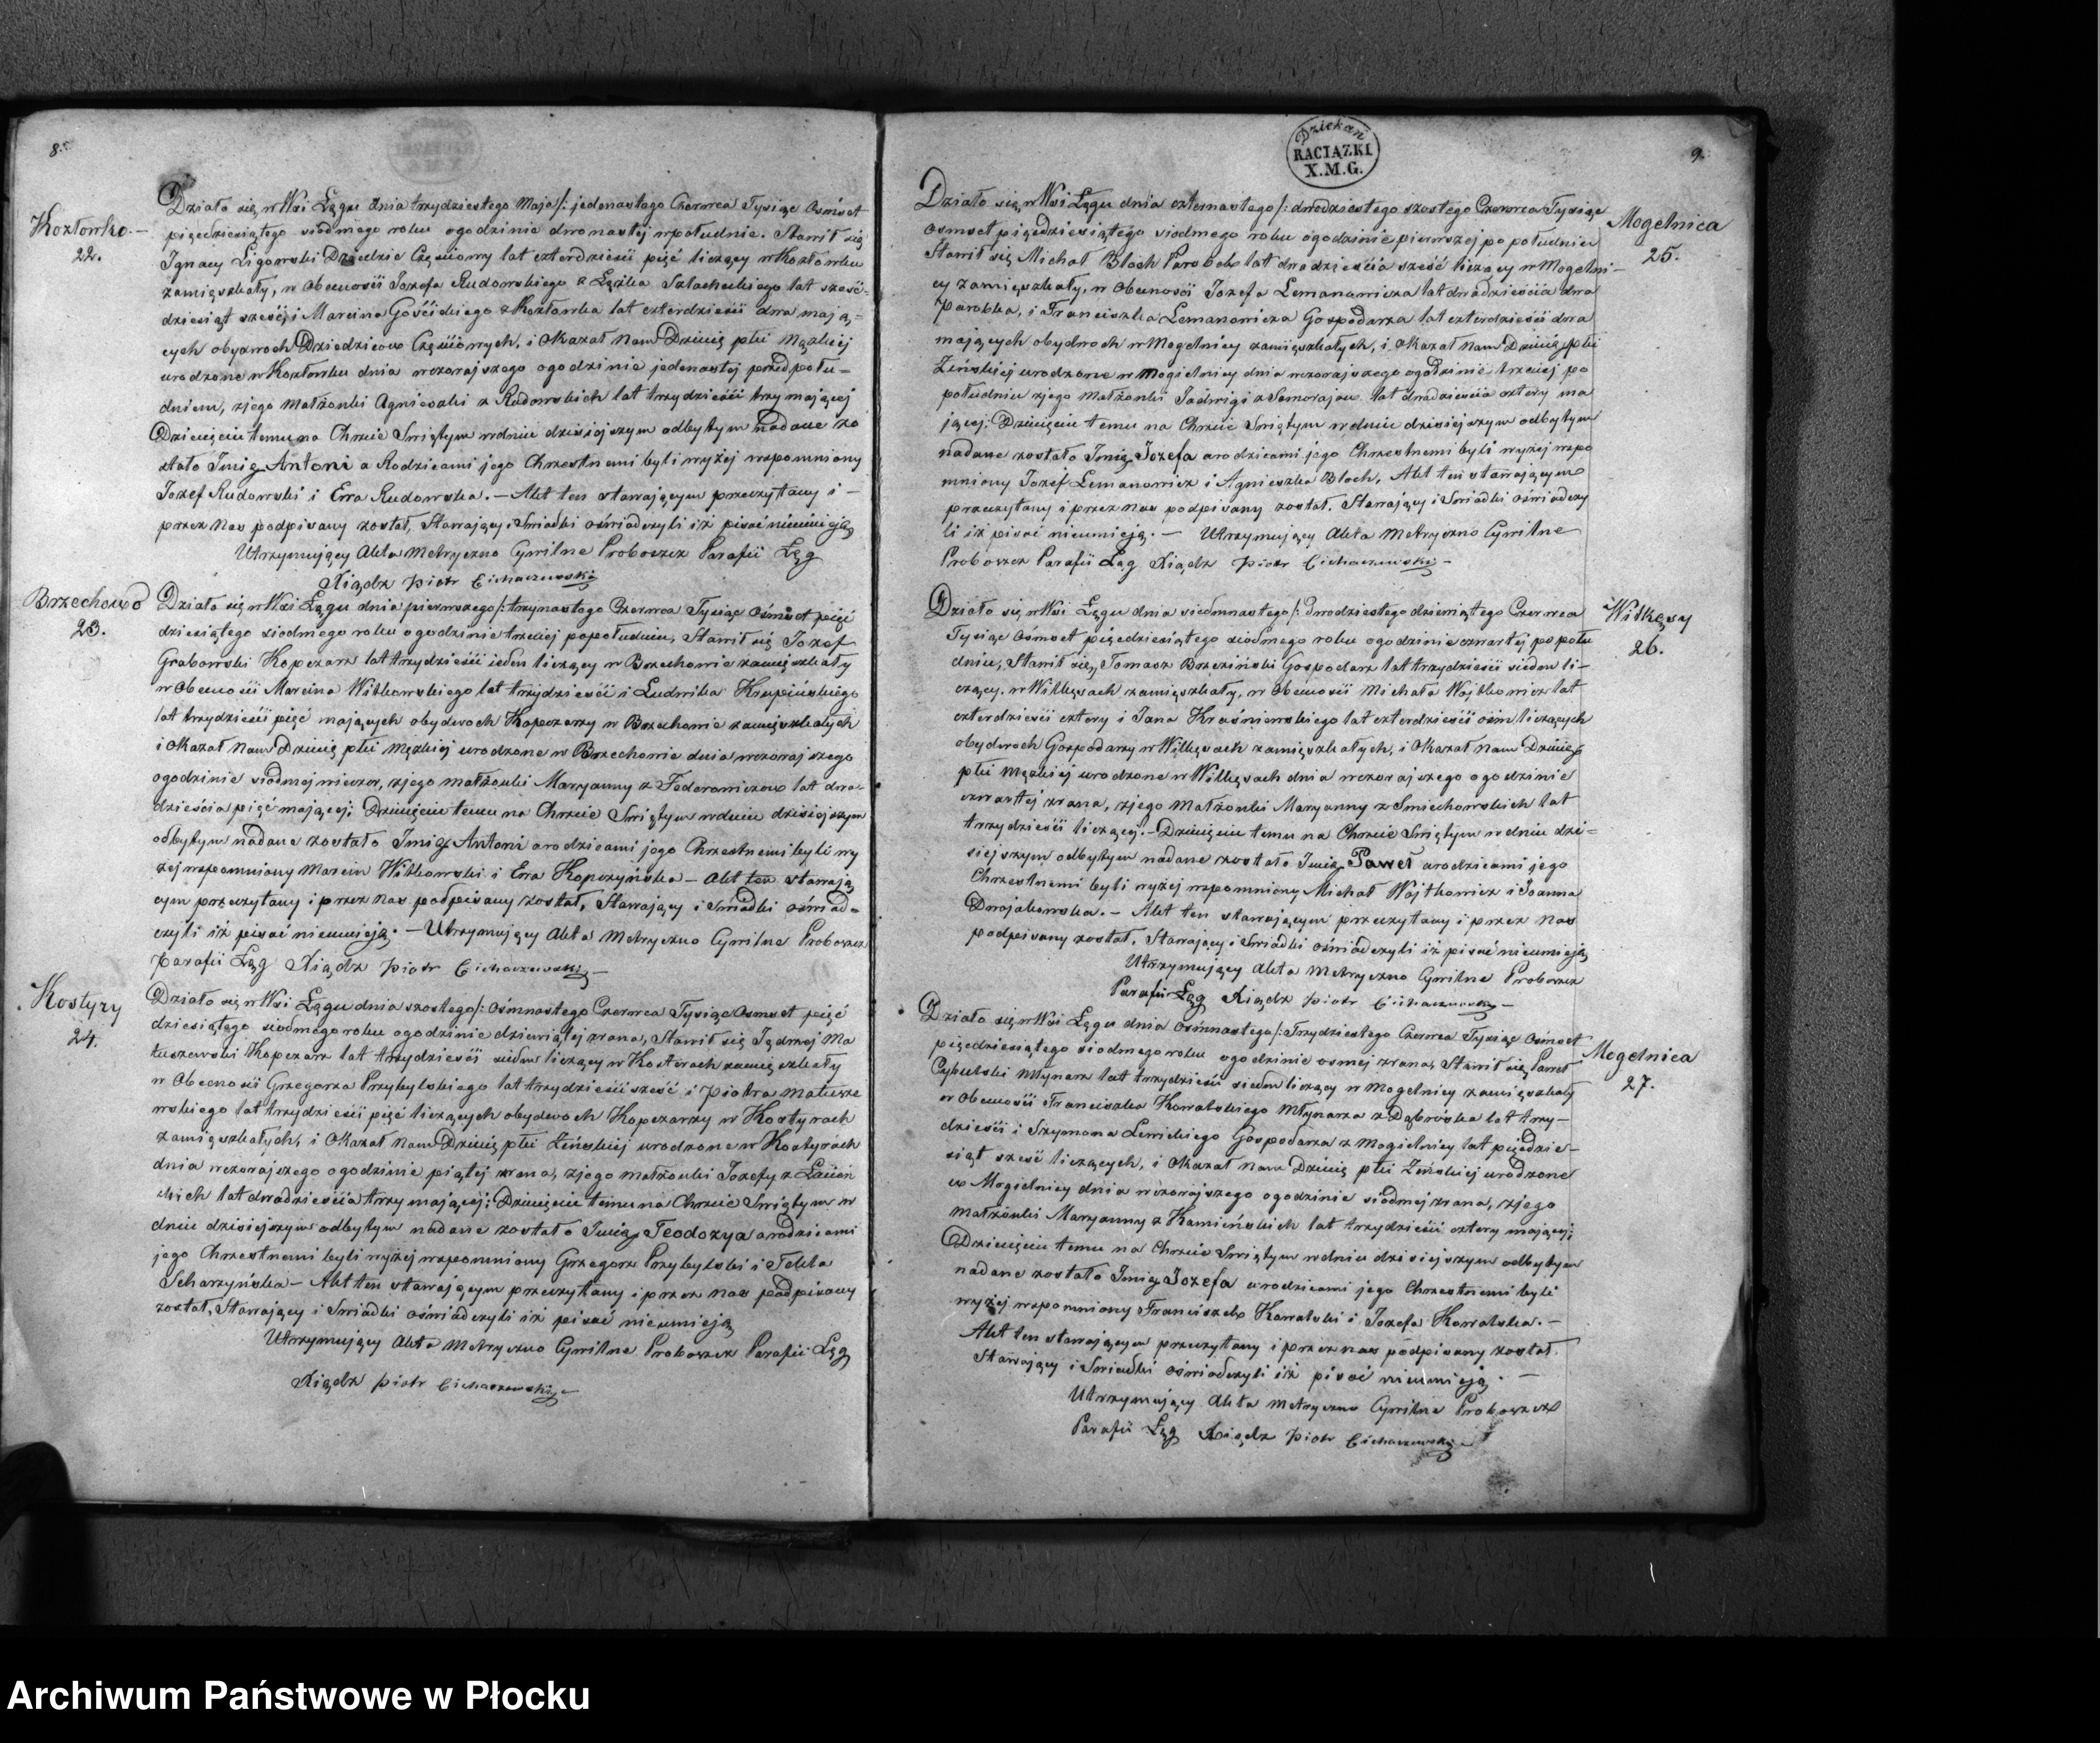 8.
Kozłowko.—
22.
Działo się w Wsi Łęgu dnia trzydziestego Maja /: jedenastego Czerwca Tysiąc Osmset
pięćdziesiątego siodmego roku ogodzinie dwonastej wpołudnie. Stawił się
Ignacy Ligowski Dziedzic Cząstkowy lat czterdzieści pięć liczący w Kozłowku
zamięszkały, w Obecności Jozefa Rudowskiego z Łążka Szlacheckiego lat sześć-
dziesiąt sześć, i Marcina Gościckiego z Kozłowka lat czterdzieści dwa mają=
cych obydwoch Dziedziców Cząstkowych, i Okazał Nam Dziecię płci Męzkiej
urodzone w Kozłowku dnia wczorajszego ogodzinie jedenastej przedpołu=
dniem, zjego Małżonki Agnieszki z Rudowskich lat trzydzieści trzy mającej
Dziecięciu temu na Chrzcie Swiętym wdniu dzisiejszym odbytym nadane zo
stało Imię Antoni a Rodzicami jego Chrzestnemi byli wyżej wspomniony
Jozef Rudowski i Ewa Rudowska. — Akt ten stawającym przeczytany i —
przez Nas podpisany został, Stawający i Swiadki oświadczyli iż pisać nieumieją,
Utrzymujący Akta Metryczno Cywilne Proboszcz Parafii Łęg
Xiądz Piotr Cichaczewski
Brzechowo
23.
Działo się w Wsi Łęgu dnia pierwszego /: trzynastego Czerwca Tysiąc Osmset pięć
dziesiątego siodmego roku ogodzinie trzeciej popołudniu, Stawił się Jozef
Grabowski Kopczarz lat trzydzieści ieden liczący w Brzechowie zamięszkały
w Obecności Marcina Witkowskiego lat trzydzieści i Ludwika Krupińskiego
lat trzydzieści pięć mających obydwoch Kopczarzy w Brzechowie zamięszkałych
i Okazał Nam Dziecię płci Męzkiej urodzone w Brzechowie dnia wczorajszego
ogodzinie siodmej wieczor, zjego małżonki Maryanny z Fedorowiczow lat dwa-
dzieścia pięć mającej; Dziecięciu temu na Chrzcie Swiętym wdniu dzisiejszym
odbytym nadane zostało Imię Antoni a rodzicami jego Chrzestnemi byli wy
żej wspomniony Marcin Witkowski i Ewa Kopczyńska — Akt ten stawają
cym przeczytany i przez Nas podpisany został, Stawający i Swiadki oświad=
czyli iż pisać nieumieją. — Utrzymujący Akta Metryczno Cywilne Proboszcz
Parafii Łęg Xiądz Piotr Cichaczewski —
Kostyry
24.
Działo się w Wsi Łęgu dnia szostego /: Osmnastego Czerwca Tysiąc Osmset pięć
dziesiątego siodmego roku ogodzinie dziewiątej zrana, Stawił się Jędrzej Ma
tuszewski Kopczarz lat trzydzieści siedm liczący w Kostyrach zamięszkały
w Obecności Grzegorza Przybylskiego lat trzydzieści sześć i Piotra Matusze
wskiego lat trzydzieści pięć liczących obydwoch Kopczarzy w Kostyrach
zamięszkałych, i Okazał Nam Dziecię płci Zińskiej urodzone w Kostyrach
dnia wczorajszego ogodzinie piątej zrana, zjego małżonki Jozefy z
skich lat dwadzieścia trzy mającej; Dziecięciu temu na Chrzcie Swiętym w
dniu dzisiejszym odbytym nadane zostało Imię Teodozya a rodzicami
jego Chrzestnemi byli wyżej wspomniony Grzegorz Przybylski i Tekla
Scharzyńska — Akt ten stawającym przeczytany i przez nas podpisany
został, Stawający i Swiadki oświadczyli iż pisać nieumieją
Utrzymujący Akta Metryczno Cywilne Proboszcz Parafii Łęg
Xiądz Piotr Cichaczewski
Dziekan
RACIĄZKI
X.M.G.
9.
Mogelnica
25.
Działo się w Wsi Łęgu dnia czternastego /: dwudziestego szostego Czerwca Tysiąc
osmset pięćdziesiątego siodmego roku ogodzinie pierwszej po południu
Stawił się Michał Bloch Parobek lat dwadzieścia sześć liczący w Mogelni-
cy zamięszkały, w Obecności Jozefa Lemanowicza lat dwadzieścia dwa
Parobka, i Franciszka Lemanowicza Gospodarza lat czterdzieści dwa
mających obydwoch w Mogelnicy zamięszkałych, i Okazał Nam Dziecię płci
Zińskiej urodzone w Mogielnicy dnia wczorajszego ogodzinie trzeciej po
południu zjego Małżonki Jadwigi z Semorajow lat dwadzieścia cztery ma
jącej; Dziecięciu temu na Chrzcie Swiętym wdniu dzisiejszym odbytym
nadane zostało Imię Jozefa arodzicami jego Chrzestnemi byli wyżej wspo
mniony Jozef Lemanowicz i Agnieszka Bloch, Akt ten stawającym
przeczytany i przez nas podpisany został. Stawający i Swiadki oświadczy
li iż pisać nieumieją. — Utrzymujący Akta Metryczno Cywilne
Proboszcz Parafii Łęg Xiądz Piotr Cichaczewski —
Witkęsy
26.
Działo się w Wsi Łęgu dnia siedmnastego /: Dwudziestego dziewiątego Czerwca
Tysiąc Osmset pięćdziesiątego siodmego roku ogodzinie czwartej po połu
dniu, Stawił się, Tomasz Brzeziński Gospodarz lat trzydzieści siedem li-
czący, w Witkęsach zamięszkały, w Obecności Michała Wojtkowicz lat
czterdzieści cztery i Jana Kraśniewskiego lat czterdzieści ośm liczących
obydwoch Gospodarzy w Witkęsach zamięszkałych, i Okazał Nam Dziecię
płci Męzkiej urodzone w Witkęsach dnia wczorajszego ogodzinie
czwartej zrana, zjego Małżonki Maryanny z Smiechowskich lat
trzydzieści liczącej. — Dziecięciu temu na Chrzcie Swiętym wdniu dzi=
siejszym odbytym nadane zostało Imię Paweł arodzicami jego
Chrzestnemi byli wyżej wspomniony Michał Wojtkowicz i Joanna
Drwajakowska. — Akt ten stawającym przeczytany i przez nas
podpisany został, Stawający i Swiadki oświadczyli iż pisać nieumieją
Utrzymujący Akta Metryczno Cywilne Proboszcz
Parafii Łęg Xiądz Piotr Cichaczewski —
Mogelnica
27.
Działo się w Wsi Łęgu dnia Osmnastego /: Trzydziestego Czerwca Tysiąc Osmset
pięćdziesiątego siodmego roku ogodzinie osmej zrana, Stawił się Paweł
Cybulski Młynarz lat trzydzieści siedm liczący w Mogelnicy zamięszkały
w Obecności Franciszka Kowalskiego Młynarza z Dąbrówka lat trzy-
dzieści i Szymona Lewickiego Gospodarza z Mogielnicy lat pięćdzie-
siąt sześć liczących, i Okazał Nam Dziecię płci Zińskiej urodzone
w Mogielnicy dnia wczorajszego ogodzinie siodmej zrana, zjego
Małżonki Maryanny z Kamińskich lat trzydzieści cztery mającej;
Dziecięciu temu na Chrzcie Swiętym wdniu dzisiejszym odbytym
nadane zostało Imię Jozefa a rodzicami jego Chrzestnemi byli
wyżej wspomniony Franciszek Kowalski i Jozefa Kowalska. —
Akt ten stawającym przeczytany i przez nas podpisany został.
Stawający i Swiadki oświadczyli iż pisać nieumieją. —
Utrzymujący Akta Metryczno Cywilne Proboszcz
Parafii Łęg Xiądz Piotr Cichaczewski
Archiwum Państwowe w Płocku